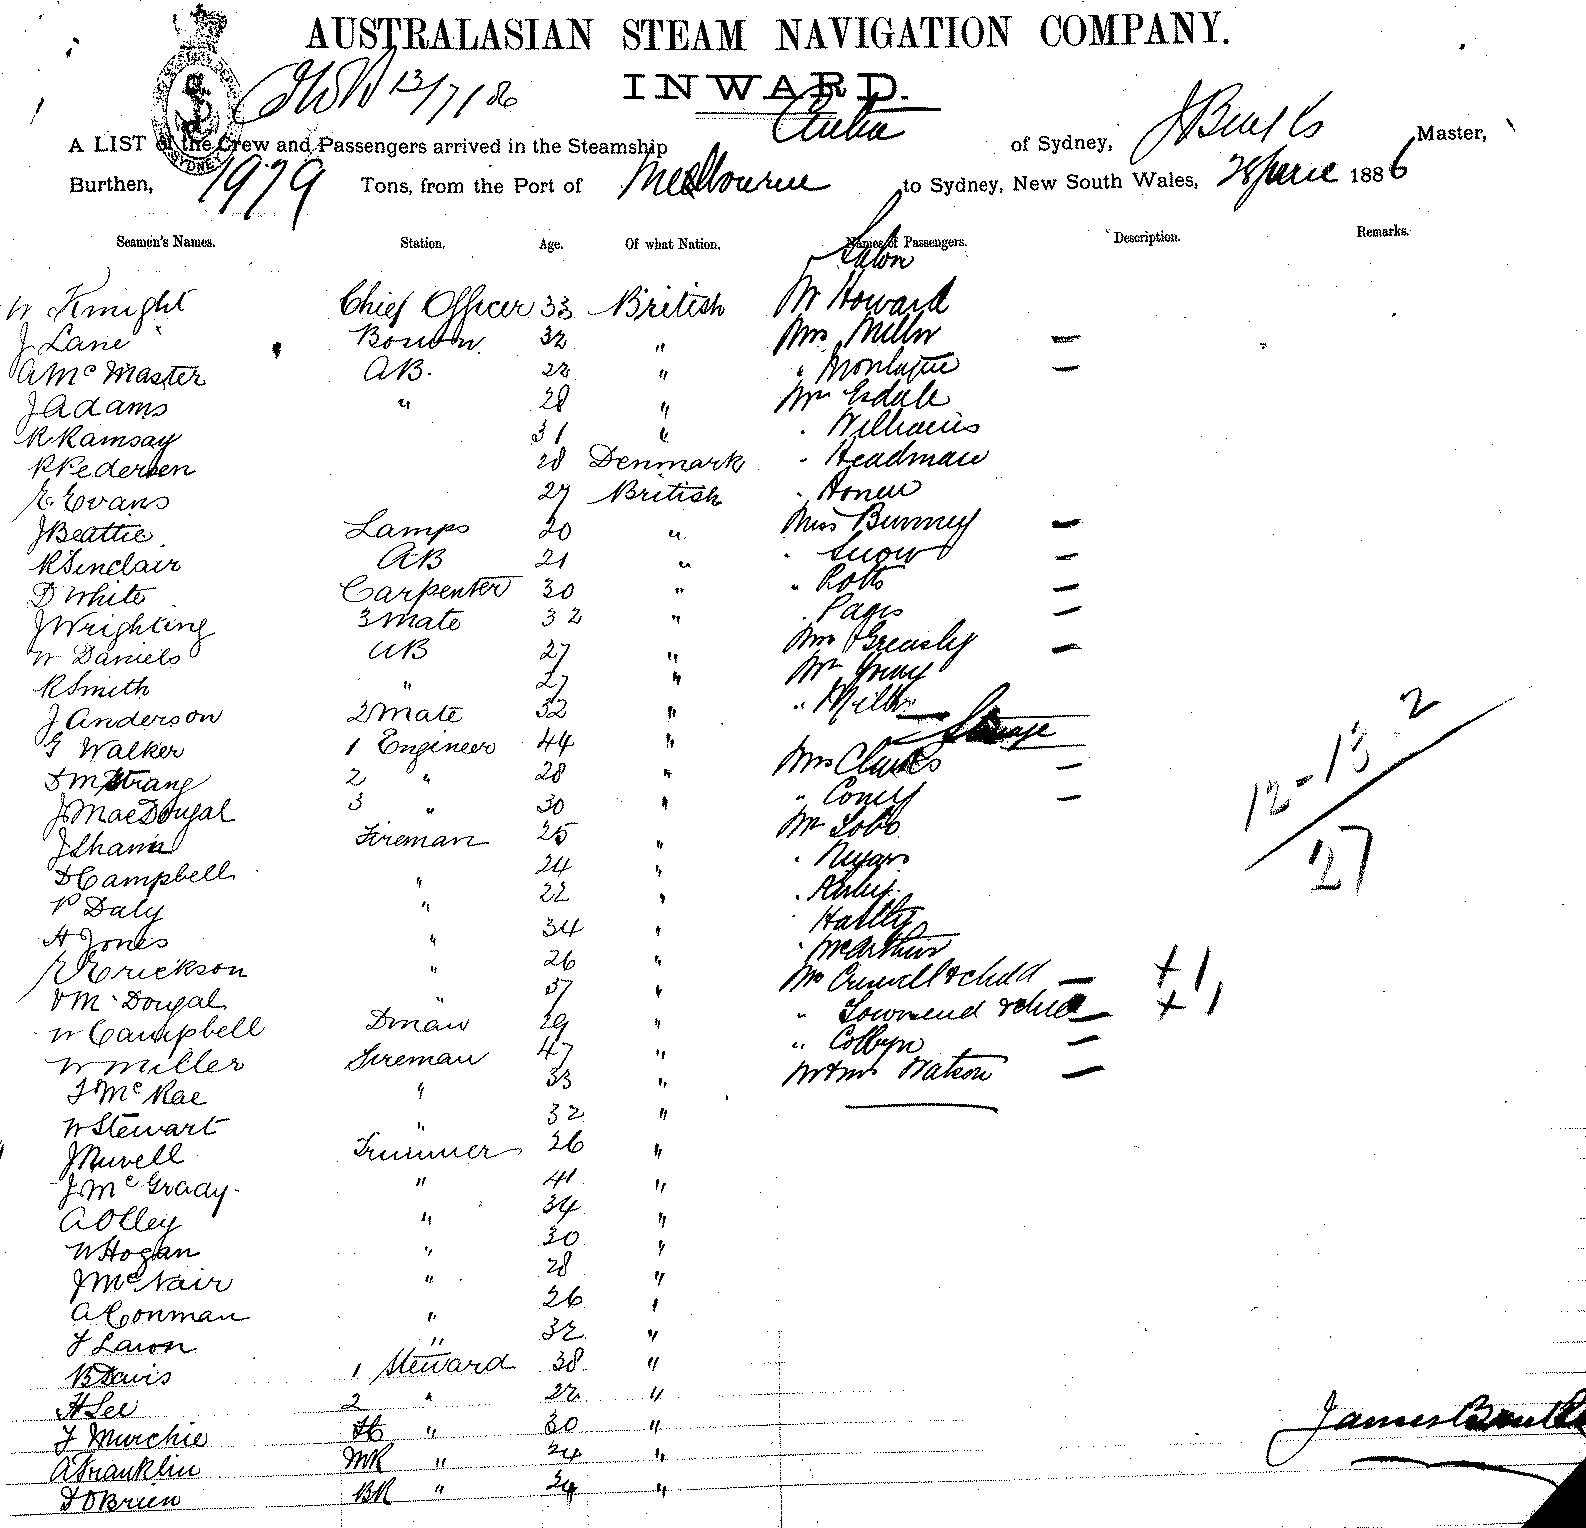 AUSTRALASIAN STEAM NAVIGATION COMPANY.
13/7/86
INWARD.
A LIST of the Crew and Passengers arrived in the Steamship of Sydney, Master,
Burthen, 1979 Tons, from the Port of Melbourne to Sydney, New South Wales, 28 June 1886
Seamen's Names. Station. Age. Of what Nation. Names of Passengers. Description. Remarks.
Salon
W Knight Chief Officer 33 British Mr Howard
J Lane Bosun 32 " Mrs Miller —
A McMaster AB. 22 " " Montague —
J Adams " 28 " Mr Esdale
R Ramsay 31 " . Williams
P Pedersen 28 Denmark . Headman
E Evans 27 British
J Beattie Lamps 20 " Miss Burney —
R Sinclair AB 21 " . Snow —
D White Carpenter 30 " " Potts —
J Wrighting 3 Mate 32 " —
W Daniels AB 27 " Mrs Greasley —
R Smith " 27 " Mr Gray
J Anderson 2 Mate 32 " " Miller
Steerage
G Walker 1 Engineer 44 " Mrs Clarke —
D M Strang 2 " 28 " —
J MacDougal 3 " 30 "
J Shann Fireman 25 "
D Campbell 24 "
P Daly " 22 "
H Jones " 34 " . Hartley
R Erickson " 26 " . McArthur
D McDougal " 37 " & child — + 1
W Campbell Dman 29 " " Townsend & child — + 1
W Miller Fireman 47 " —
F McRae " 33 " Mr & Mrs Watson —
W Stewart " 32 "
J Nuvell Trimmer 26 "
J McGrady " 41 "
A Olley " 34 "
W Hogan " 30 "
J McNair " 28 "
A Conman " 26 "
F Lawn " 32 "
B Davis 1 Steward 38 "
H Lee 2 " 22 "
F Murchie " 30 "
A Franklin MR " 24 "
D O'Brien BR " 24 "
12-13 2
27
James